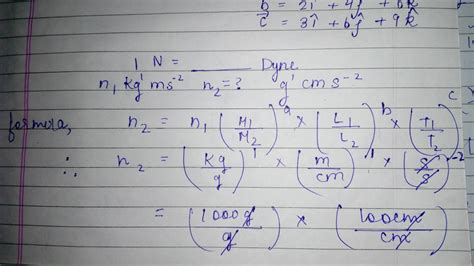 b = 2î + 4ĵ + 6k̂
c = 3î + 6ĵ + 9k̂
1 N = ______ Dyne
n₁ kg¹ ms⁻² n₂ = ? g¹ cm s⁻²
formula, n₂ = n₁ (M₁/M₂)ᵃ × (L₁/L₂)ᵇ × (T₁/T₂)ᶜ
∴ n₂ = (Kg/g)¹ × (m/cm)¹ × (s/s)⁻²
= (1000g/g) × (100cm/cm)